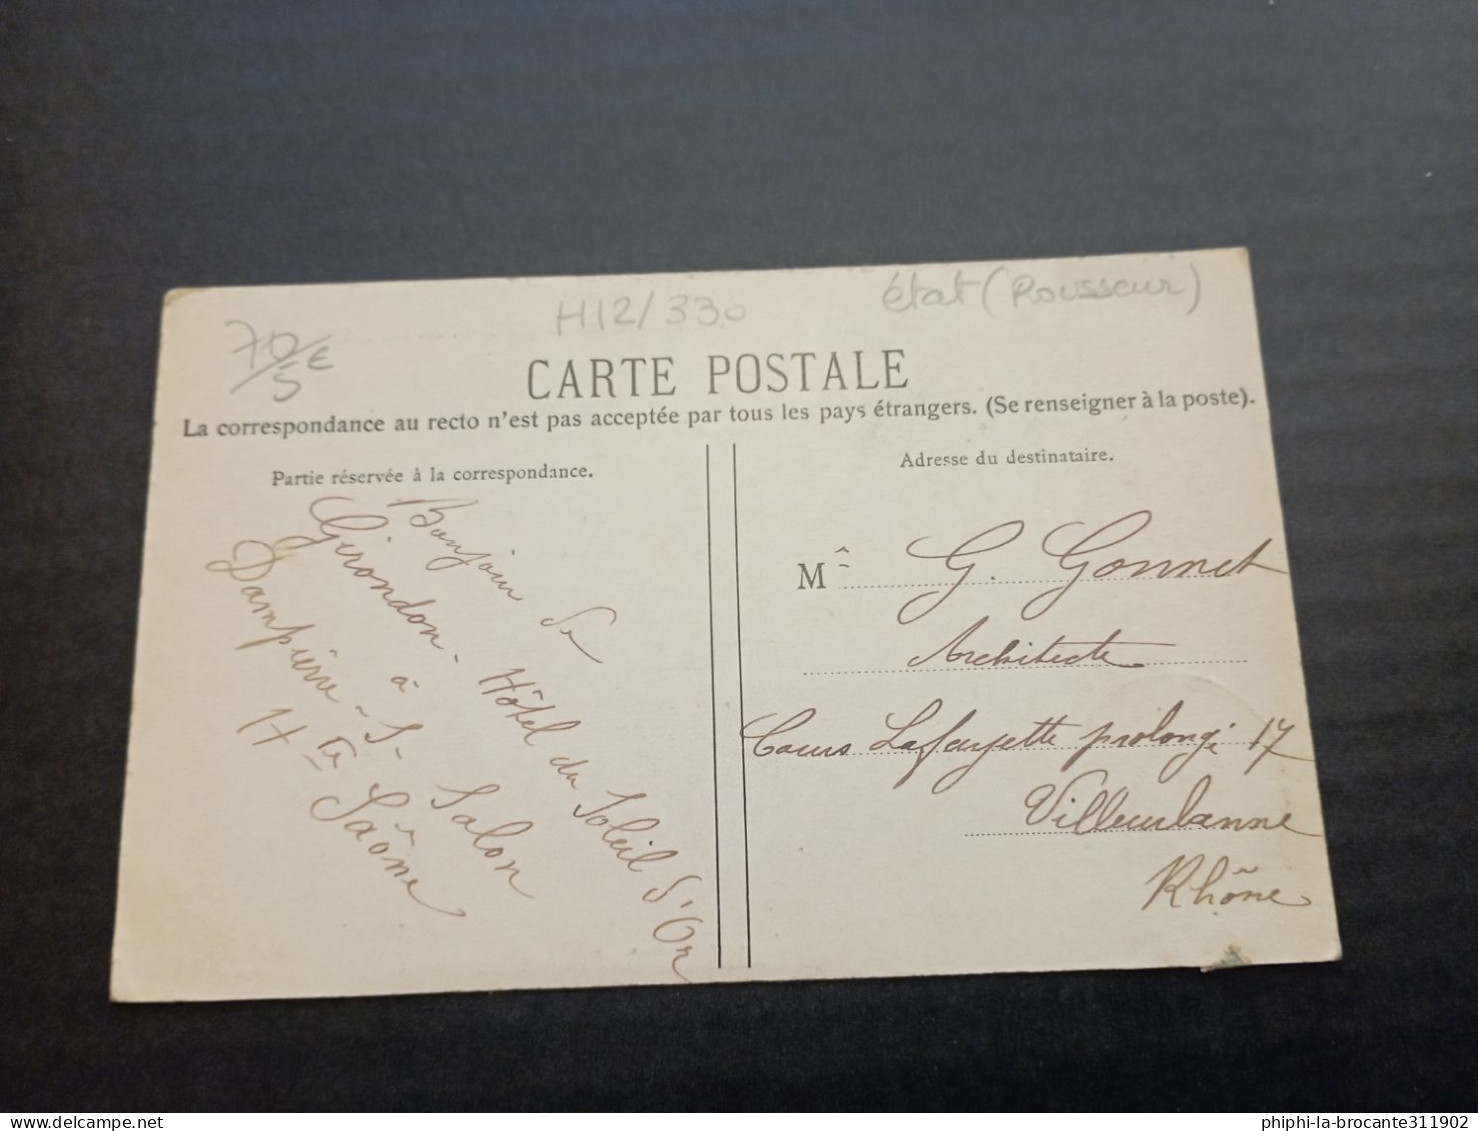 70/5 €
H12/330
état (Rousseur)
CARTE POSTALE
La correspondance au recto n'est pas acceptée par tous les pays étrangers. (Se renseigner à la poste).
Partie réservée à la correspondance.
Bonjour de
Girondon. Hôtel du Soleil d'Or
à
Dampierre-s- Salon
Hte Saône
Adresse du destinataire.
Mr G. Gonnet
Architecte
Cours Lafayette prolongé 17
Villeurbanne
Rhône
phiphi-la-brocante311902